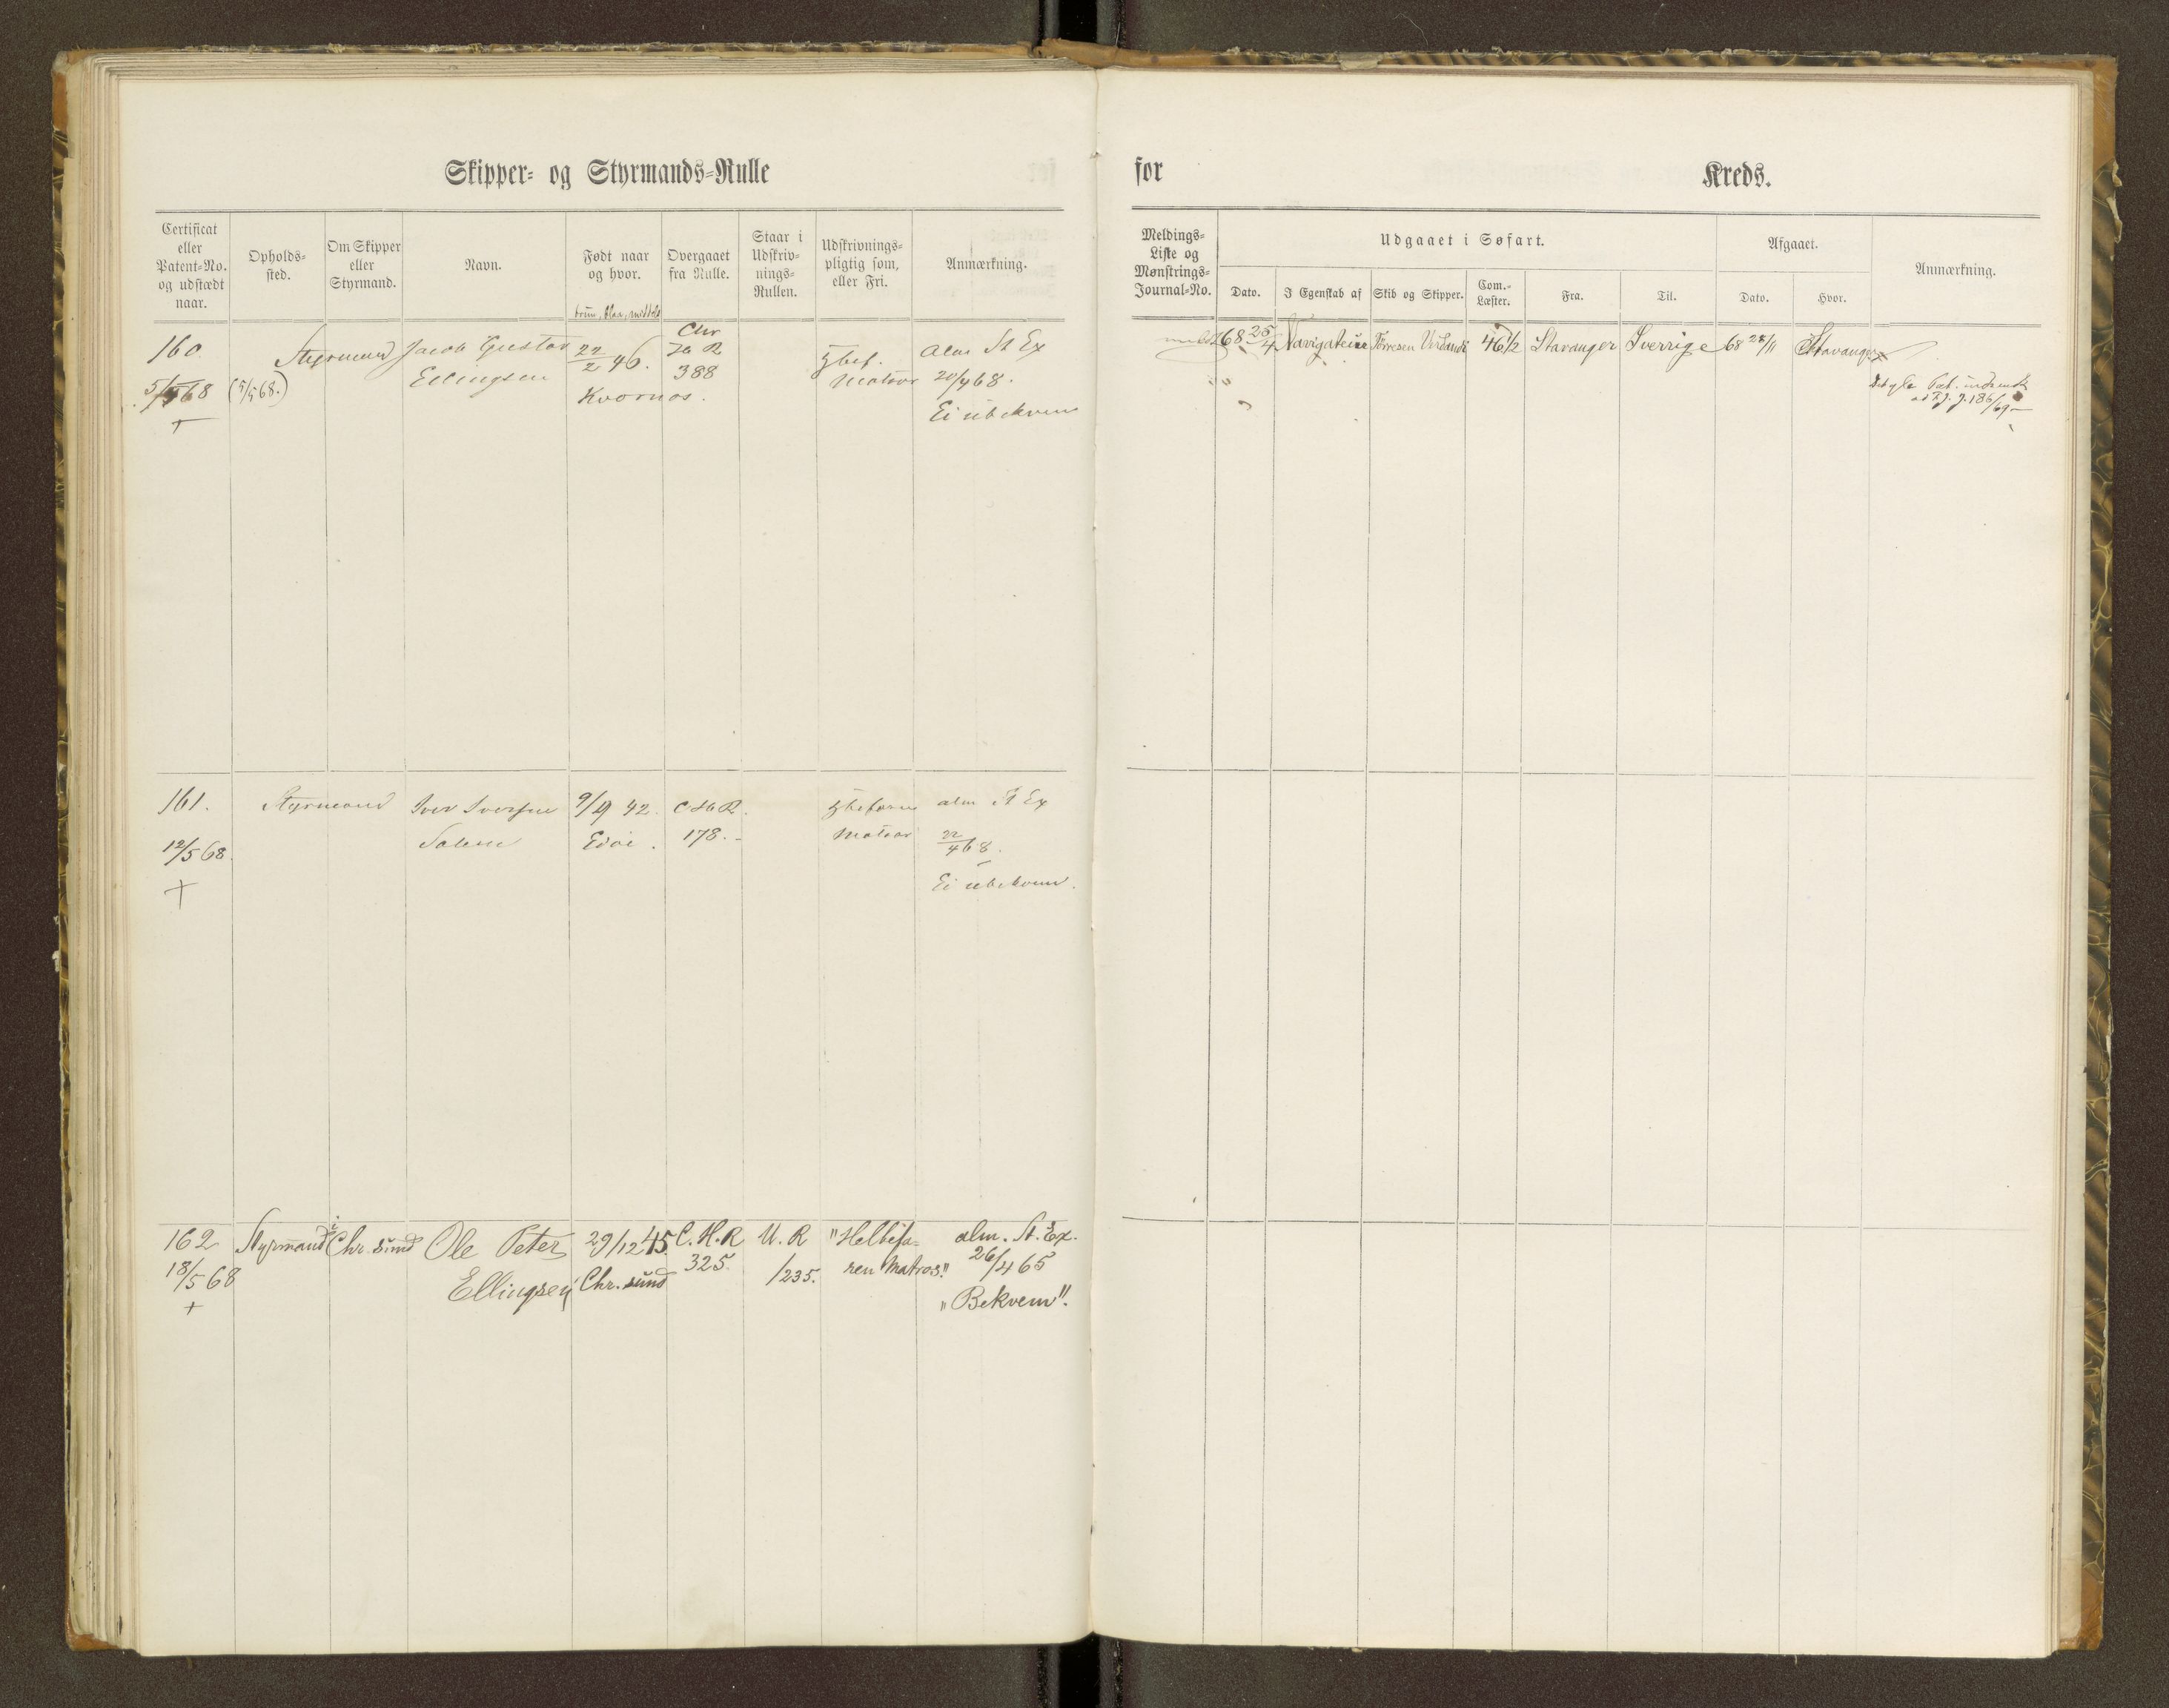 Skipper- og Styrmands-Rulle
for
Kreds.
Certificat eller Patent-No. og udstædt naar.
Opholds-sted.
Om Skipper eller Styrmand.
Navn.
Født naar og hvor.
Overgaaet fra Rulle.
Staar i Udskriv-nings-Rullen.
Udskrivnings-pligtig som, eller Fri.
Anmærkning.
Meldings-Liste og Mønstrings-Journal-No.
Udgaaet i Søfart.
Dato.
I Egenskab af
Skib og Skipper.
Com.-Læster.
Fra.
Til.
Afgaaet.
Dato.
Hvor.
Anmærkning.
brun, blaa, middels
160.
5/5 68
(5/5 68.)
Styrmand
Jacob Gustav
Ellingsen
22/2 46.
Kvornæs.
Chr
H R
388
Matros
Alm St Ex
20/4 68.
Ei ubekvem
68 25/4
Navigateur
46 1/2
Stavanger
Sverrige
68 28/11
Stavanger
161.
12/5 68.
+
Styrmand
Iver Iversen
9/9 42.
Edøe.
C H R.
178.
Matros
alm St Ex
22/4 68.
Ei ubekvem.
162
18/5 68
+
Styrmand
Chr.sund
Ole Peter
Ellingsen
29/12 45
Chr.sund
C. H. R
325.
U. R
/235.
"Helbefa-
ren Matros."
alm. St. Ex.
26/4 65
"Bekvem".